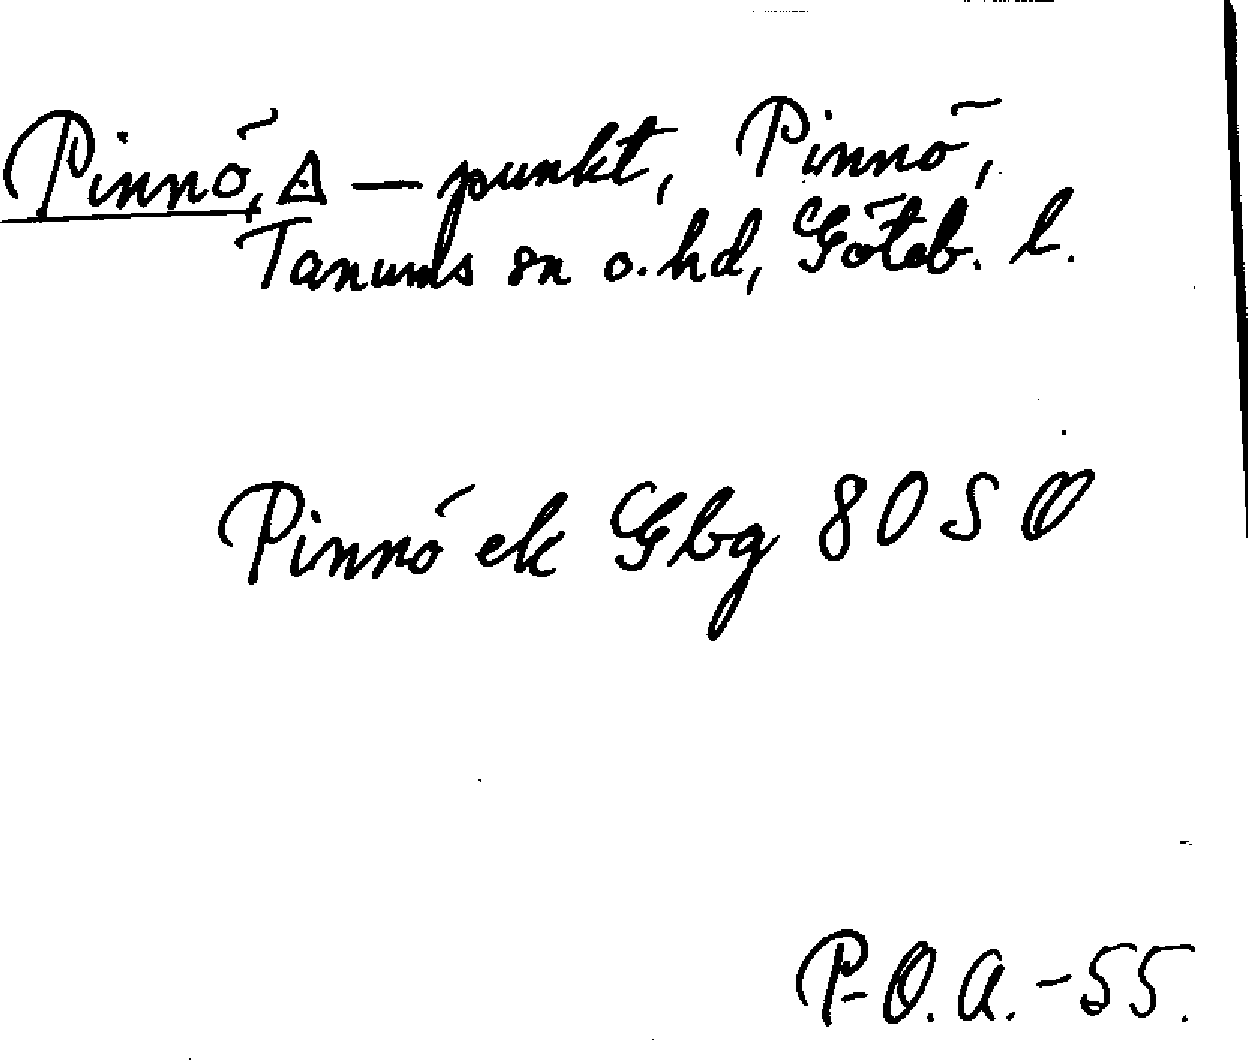 Pinnö, Δ — punkt, Pinnö,
Tanums sn o. hd, Göteb. l.
Pinnö ek Gbg 80 SO
P-O.A.-55.